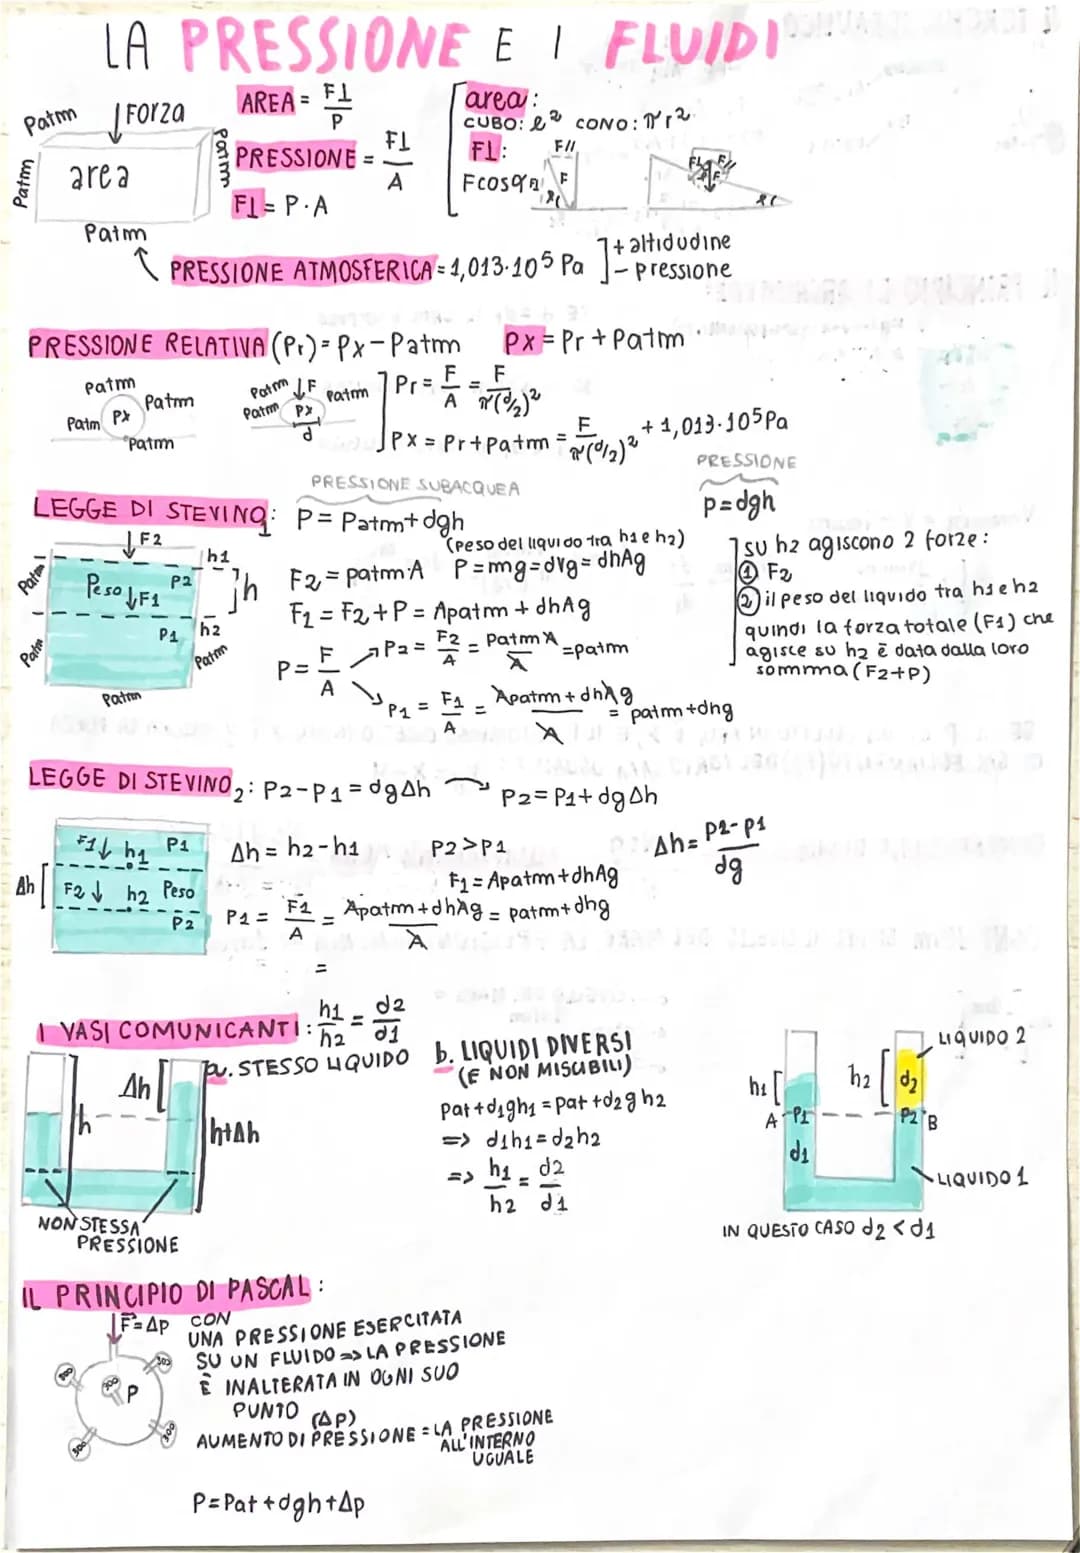 LA PRESSIONE E I FLUIDI
Patm
FORZA
area
Patm
Patm
Patm
AREA = F⊥/P
PRESSIONE = F⊥/A
F⊥ = P·A
area:
CUBO: l² CONO: πr²
F⊥:
Fcosα
F//
F
α
F⊥ F//
F
α
PRESSIONE ATMOSFERICA = 1,013·10⁵ Pa
+ altidudine
- pressione
PRESSIONE RELATIVA (Pr) = Px - Patm
Px = Pr + Patm
Patm
Patm Px Patm
Patm
Patm F
Patm Px Patm
d
Pr = F/A = F/π(d/2)²
Px = Pr + Patm = F/π(d/2)² + 1,013·10⁵Pa
PRESSIONE SUBACQUEA
PRESSIONE
LEGGE DI STEVINO1: P = Patm + dgh
p=dgh
(peso del liquido tra h1 e h2)
F2 = patm·A P=mg=dVg=dhAg
F1 = F2 + P = Apatm + dhAg
P = F/A
P2 = F2/A = Patm A/A = patm
P1 = F1/A = Apatm + dhAg/A = patm + dhg
F2
h1
Patm
Peso F1
P2
h
P1
h2
Patm
Patm
Patm
su h2 agiscono 2 forze:
① F2
② il peso del liquido tra h1 e h2
quindi la forza totale (F1) che
agisce su h2 è data dalla loro
somma (F2+P)
LEGGE DI STEVINO2: P2-P1 = dgΔh
P2 = P1 + dgΔh
F1 h1 P1
Δh
F2 h2 Peso
P2
Δh = h2-h1 P2>P1
Δh = p2-p1/dg
F1 = Apatm + dhAg
P1 = F1/A = Apatm + dhAg/A = patm + dhg
=
I VASI COMUNICANTI: h1/h2 = d2/d1
a. STESSO LIQUIDO
Δh
h
h+Δh
NON STESSA
PRESSIONE
b. LIQUIDI DIVERSI
(E NON MISCIBILI)
pat + d1gh1 = pat + d2gh2
=> d1h1 = d2h2
=> h1/h2 = d2/d1
LIQUIDO 2
h1
h2
d2
A P1
P2 B
d1
LIQUIDO 1
IN QUESTO CASO d2 < d1
IL PRINCIPIO DI PASCAL:
F=Δp
P
CON
UNA PRESSIONE ESERCITATA
SU UN FLUIDO => LA PRESSIONE
È INALTERATA IN OGNI SUO
PUNTO
(Δp)
AUMENTO DI PRESSIONE = LA PRESSIONE
ALL'INTERNO
UGUALE
P = Pat + dgh + Δp